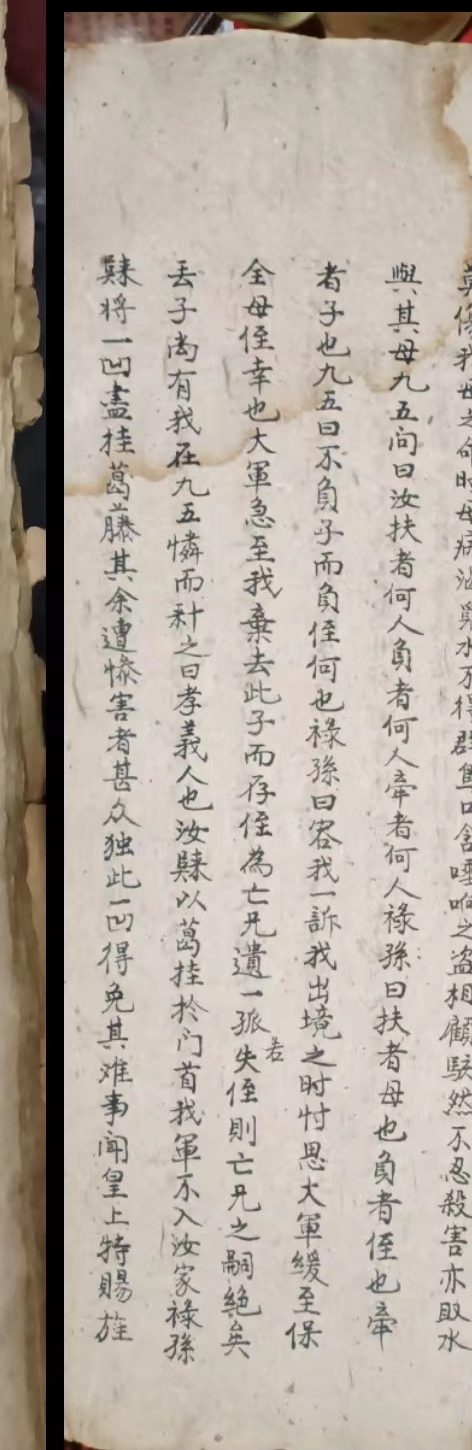 莫傷我母之命時母病渴覓水不得群隻口含唾喣之盗相顧駭然不忍殺害亦取水
與其母九五问曰汝扶者何人負者何人牽者何人禄孫曰扶者母也負者侄也牽
者子也九五曰不負子而負侄何也禄孫曰容我一訴我出境之时忖思大軍緩至保
全母侄幸也大軍急至我棄去此子而存侄為亡兄遺一孤若失侄則亡兄之嗣絶矣
丟子尚有我在九五憐而私之曰孝義人也汝歸以葛挂於门首我軍不入汝家禄孫
歸将一凹盡挂葛藤其余遭惨害者甚众独此一凹得免其难事闻皇上特賜旌